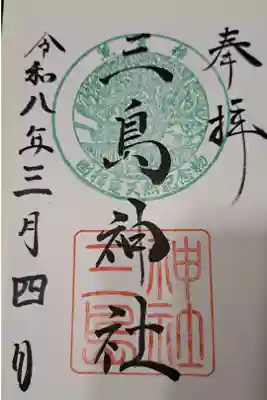 奉拝
三島神社
令和八年三月四日
三島神社